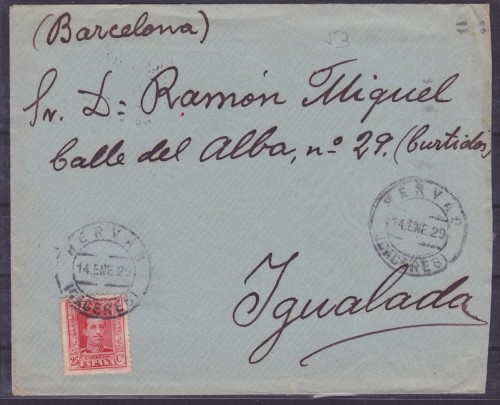 (Barcelona)
Sr. Dn: Ramón Miquel
Calle del Alba, nº 29. (Curtidos)
Igualada
HERVAS
14.ENE.29
(CACERES)
HERVAS
14.ENE.29
(CACERES)
25 Cs
ESPAÑA